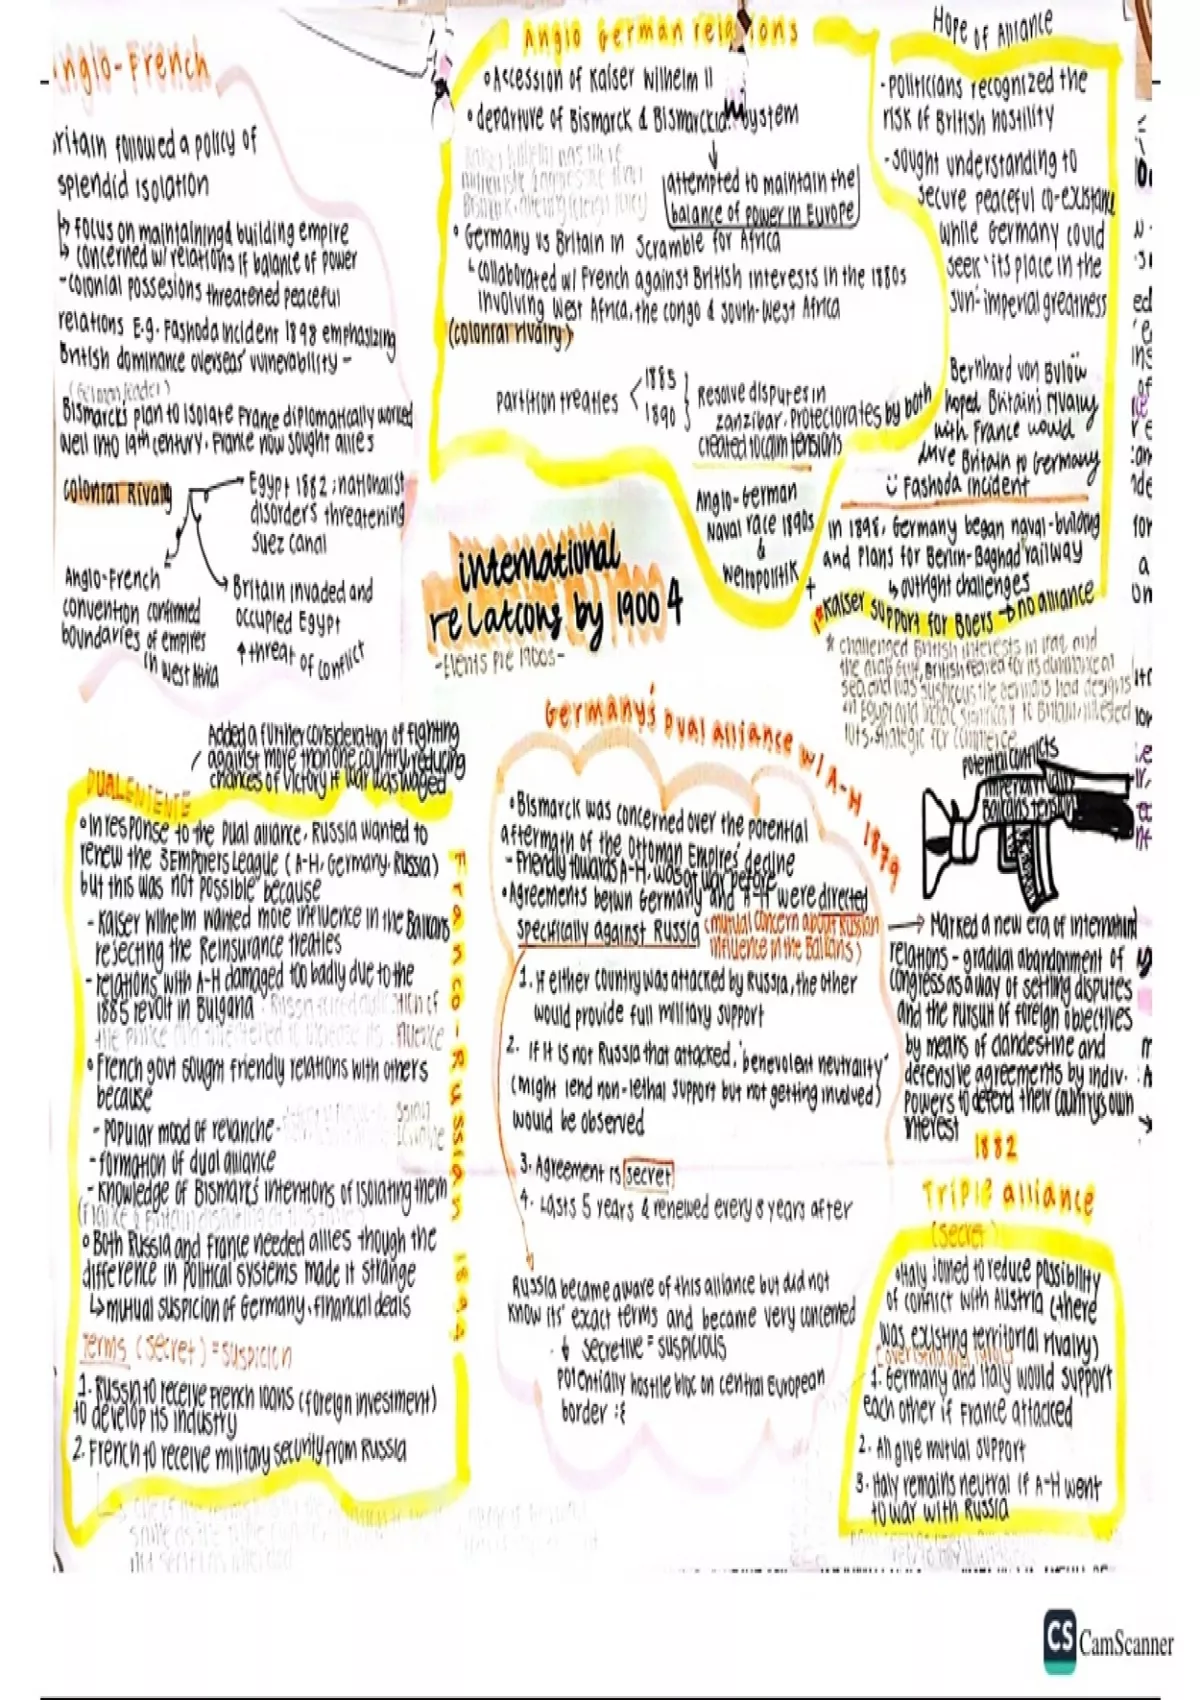 Anglo-French
Britain followed a policy of
splendid isolation
↳ focus on maintaining & building empire
↳ concerned w/ relations if balance of power
- colonial possesions threatened peaceful
relations E.g. Fashoda incident 1898 emphasizing
British dominance overseas' vunerability -
(German leader)
Bismarck's plan to isolate France diplomatically worked
well into 19th century. France now sought allies
colonial Rivalry
Egypt 1882; nationalist
disorders threatening
Suez canal
Anglo-French
convention confirmed
boundaries of empires
in West Africa
Britain invaded and
occupied Egypt
↑ threat of conflict
Anglo German relations
• Accession of Kaiser Wilhelm II
• departure of Bismarck & Bismarckian system
attempted to maintain the
balance of power in Europe
• Germany vs Britain in Scramble for Africa
↳ collaborated w/ French against British interests in the 1880s
involving West Africa, the congo & south-West Africa
(colonial rivalry)
partition treaties < 1885
1890 } Resolve disputes in
zanzibar. Protectorates by both
created to calm tensions
Anglo-German
Naval race 1890s
&
Weltopolitik
Hope of Alliance
- Politicians recognized the
risk of British hostility
- Sought understanding to
secure peaceful co-existance
while Germany could
seek 'its place in the
sun'- imperial greatness
Bernhard von Bülow
hoped Britain's rivalry
with France would
drive Britain to Germany
Fashoda incident
in 1898, Germany began naval-building
and plans for Berlin-Baghdad railway
↳ outright challenges
+
Kaiser support for Boers → no alliance
* challenged British interests in Iraq and
international
relations by 1900 4
- Events pre 1900s -
Added a further consideration of fighting
against more than one country, reducing
chances of victory if war was waged
DUAL ENTENTE
Franco-Russian 1894
• In response to the Dual alliance, Russia wanted to
renew the 3 Emporers League (A-H, Germany, Russia)
but this was not possible because
- Kaiser Wilhelm wanted more influence in the Balkans
rejecting the Reinsurance treaties
- relations with A-H damaged too badly due to the
1885 revolt in Bulgaria
• French govt sought friendly relations with others
because
- Popular mood of revanche
- formation of dual alliance
- knowledge of Bismark's intentions of isolating them
• Both Russia and France needed allies though the
difference in political systems made it strange
↳ mutual suspicion of Germany, financial deals
Terms (secret) = suspicion
1. Russia to receive French loans (foreign investment)
to develop its industry
2. French to receive military security from Russia
Germany's Dual alliance w/ A-H 1879
• Bismarck was concerned over the potential
aftermath of the Ottoman Empires' decline
- Friendly towards A-H, was at war before
• Agreements betwn Germany and A-H were directed
specifically against Russia (mutual concern about Russian
influence in the Balkans)
1. If either country was attacked by Russia, the other
would provide full military support
2. If it is not Russia that attacked, 'benevolent neutrality'
(might lend non-lethal support but not getting involved)
would be observed
3. Agreement is secret
4. Lasts 5 years & renewed every 3 years after
Russia became aware of this alliance but did not
know its' exact terms and became very concerned
↓ secretive = suspicious
potentially hostile bloc on central European
border :(
potential conflicts
imperial rivalry
Balkans tension
→ Marked a new era of internatural
relations - gradual abandonment of
congress as a way of settling disputes
and the pursuit of foreign objectives
by means of clandestine and
defensive agreements by indiv.
Powers to defend their country's own
interest
1882
Triple alliance
(secret)
• Italy joined to reduce possibility
of conflict with Austria (there
was existing territorial rivalry)
1. Germany and Italy would support
each other if France attacked
2. All give mutual support
3. Italy remains neutral if A-H went
to war with Russia
CS CamScanner